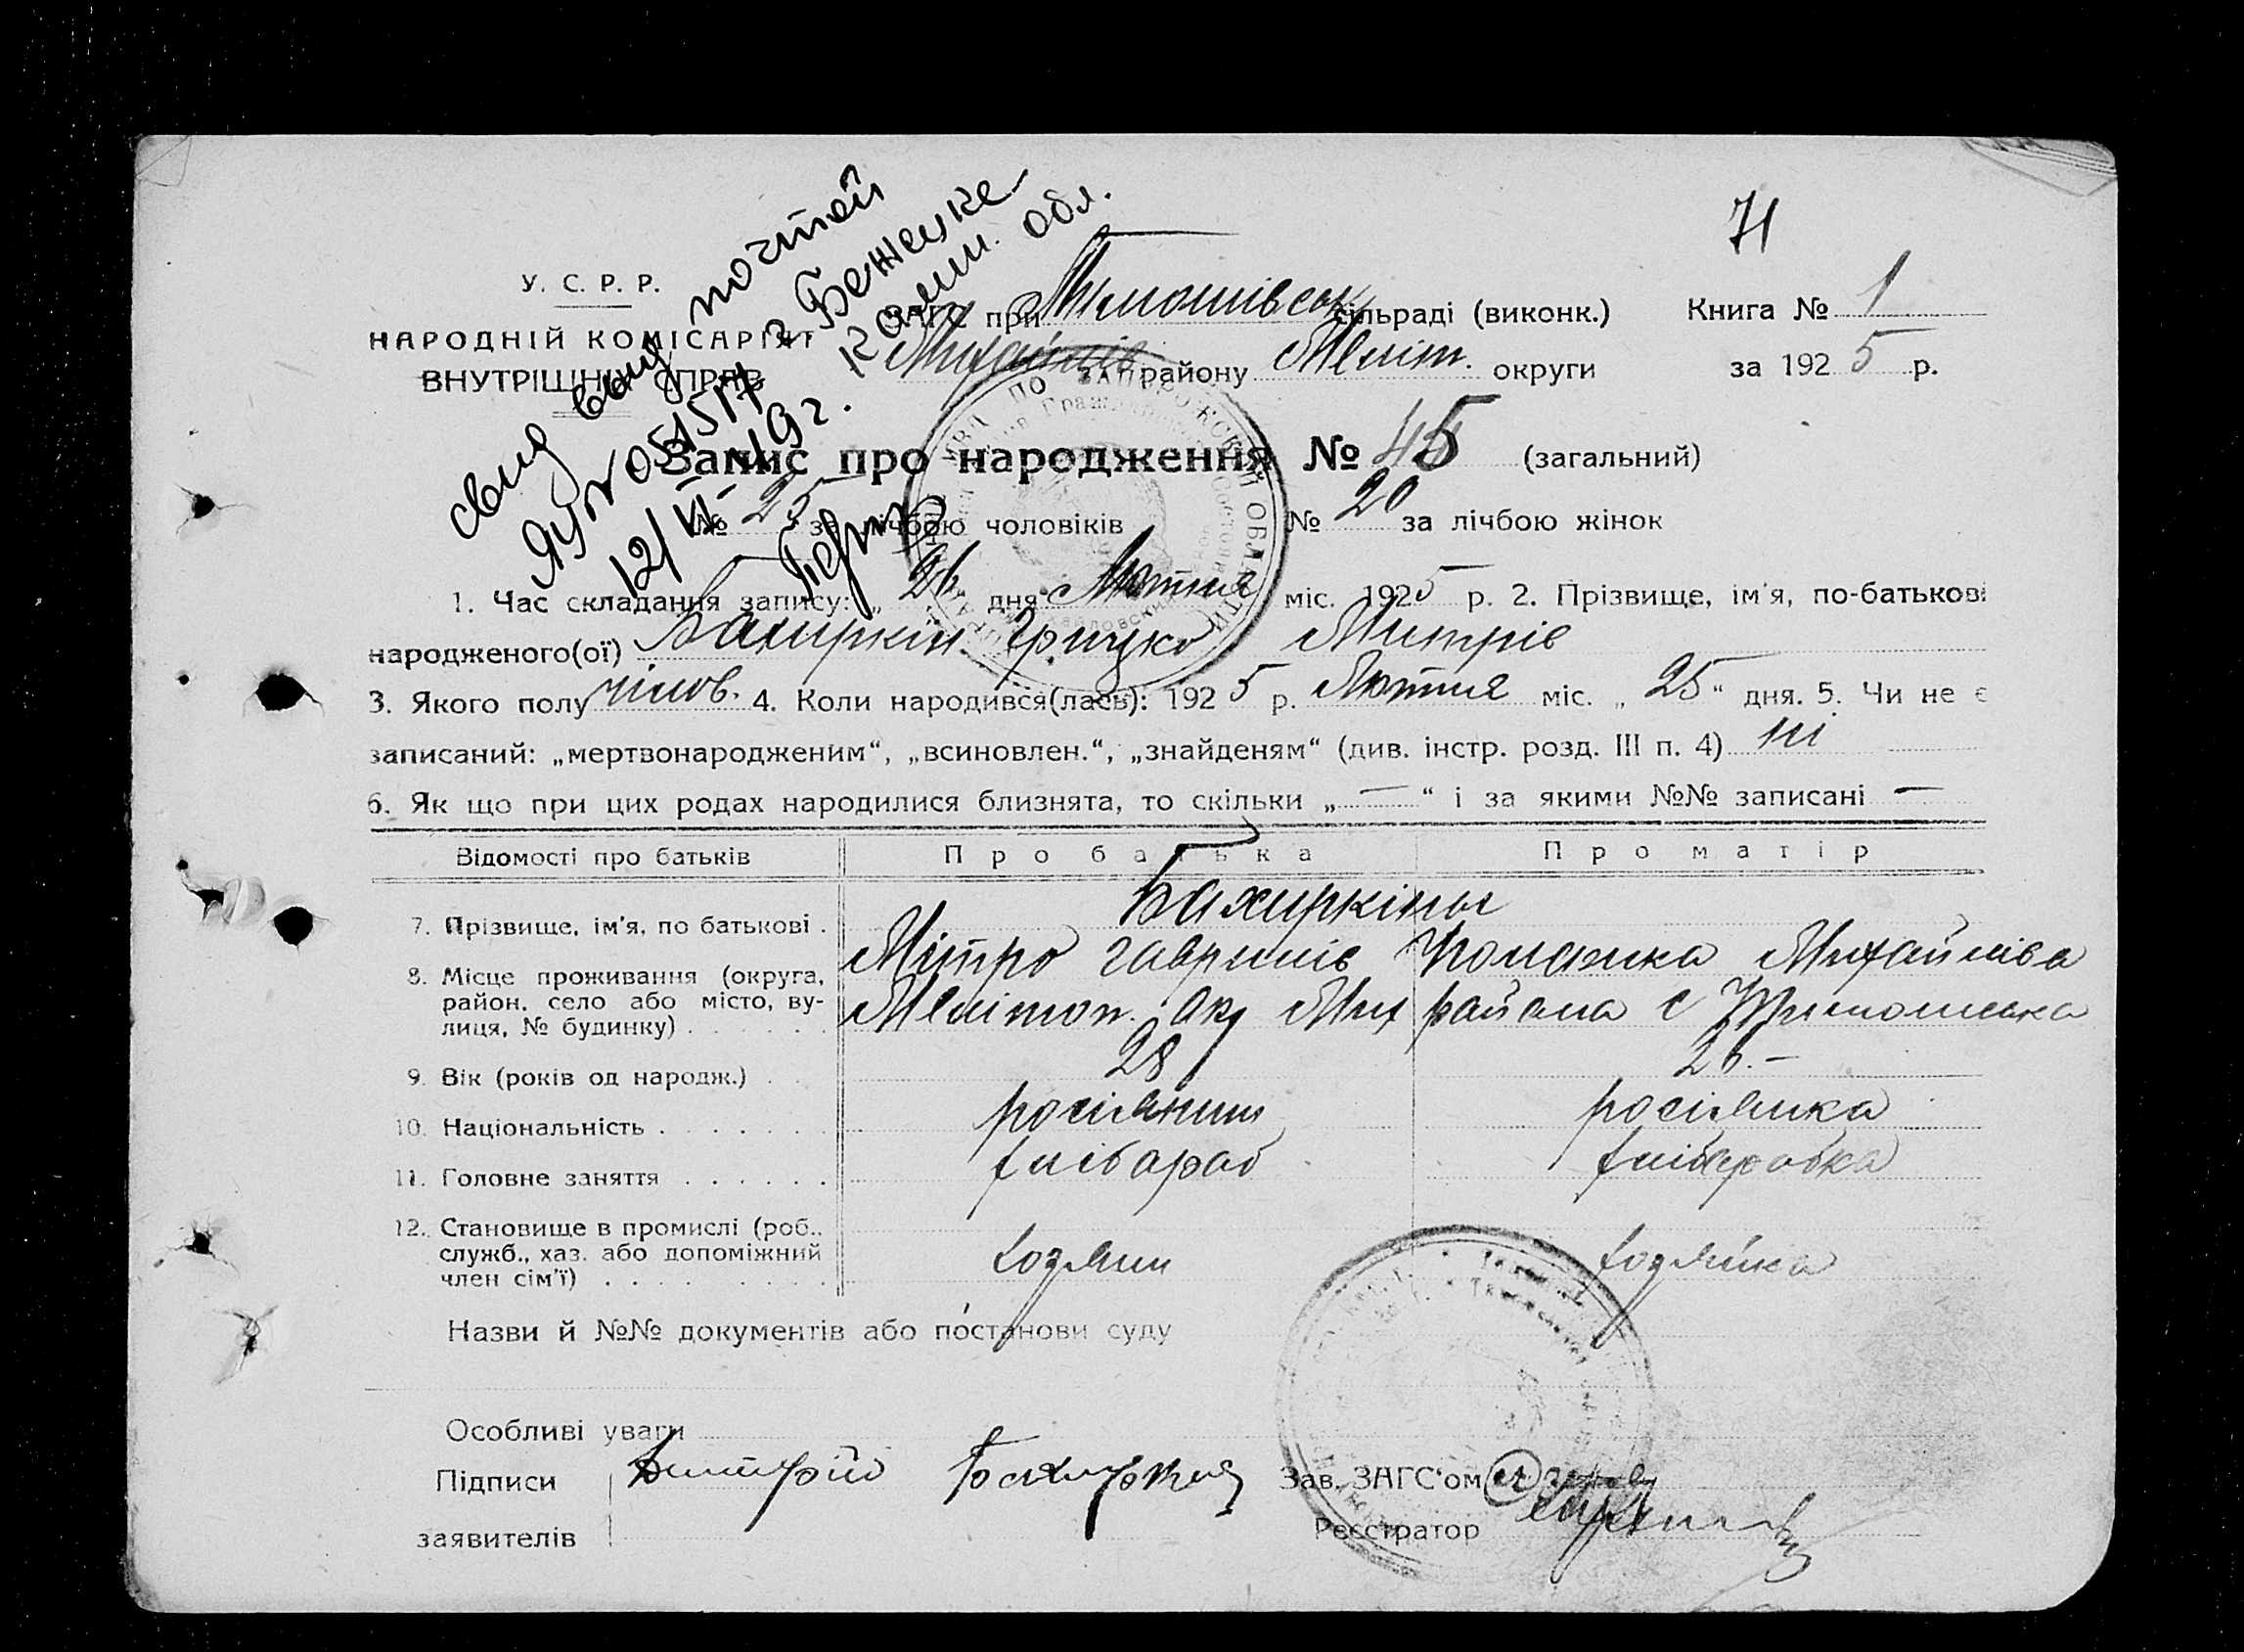 71
свид выд почтой
ЯУ № 051517 г Бежецке
12/VI- 19 г. Калин. обл.
У. С. Р. Р.
НАРОДНІЙ КОМІСАРІЯТ
ВНУТРІШНІХ СПРАВ
ЗАГС при Тимошівськ сільраді (виконк.) Книга № 1
Михайлів району Меліт. округи за 1925 р.
Запис про народження № 45 (загальний)
№ 25 за лічбою чоловіків № 20 за лічбою жінок
1. Час складання запису: „26 дня Лютня міс. 1925 р. 2. Прізвище, ім'я, по-батькові
народженого(ої) Бахиркін Грицко Митрів
3. Якого полу чілов. 4. Коли народився(лась): 1925 р. Лютня міс. „25“ дня. 5. Чи не є
записаний: „мертвонародженим“, „всиновлен.“, „знайденям“ (див. інстр. розд. III п. 4) ні
6. Як що при цих родах народилися близнята, то скільки „—“ і за якими №№ записані —
Відомості про батьків Про батька Про матір
Бахиркіны
7. Прізвище, ім'я, по батькові . Мітро Гаврилів Михайлівa
8. Місце проживання (округа,
район, село або місто, ву-
лиця, № будинку) . Мелітоп. окр Мих района с Тимошовка
9. Вік (років од народж.) . 28 26.—
10. Національність . росіянин росіянка
11. Головне заняття . хлібороб хліборобка
12. Становище в промислі (роб.,
служб., хаз. або допоміжний
член сім'ї) . хозяин хозяйка
Назви й №№ документів або постанови суду
Особливі уваги
Підписи Дмитрій Бахиркин Зав. ЗАГС'ом
заявителів Реєстратор